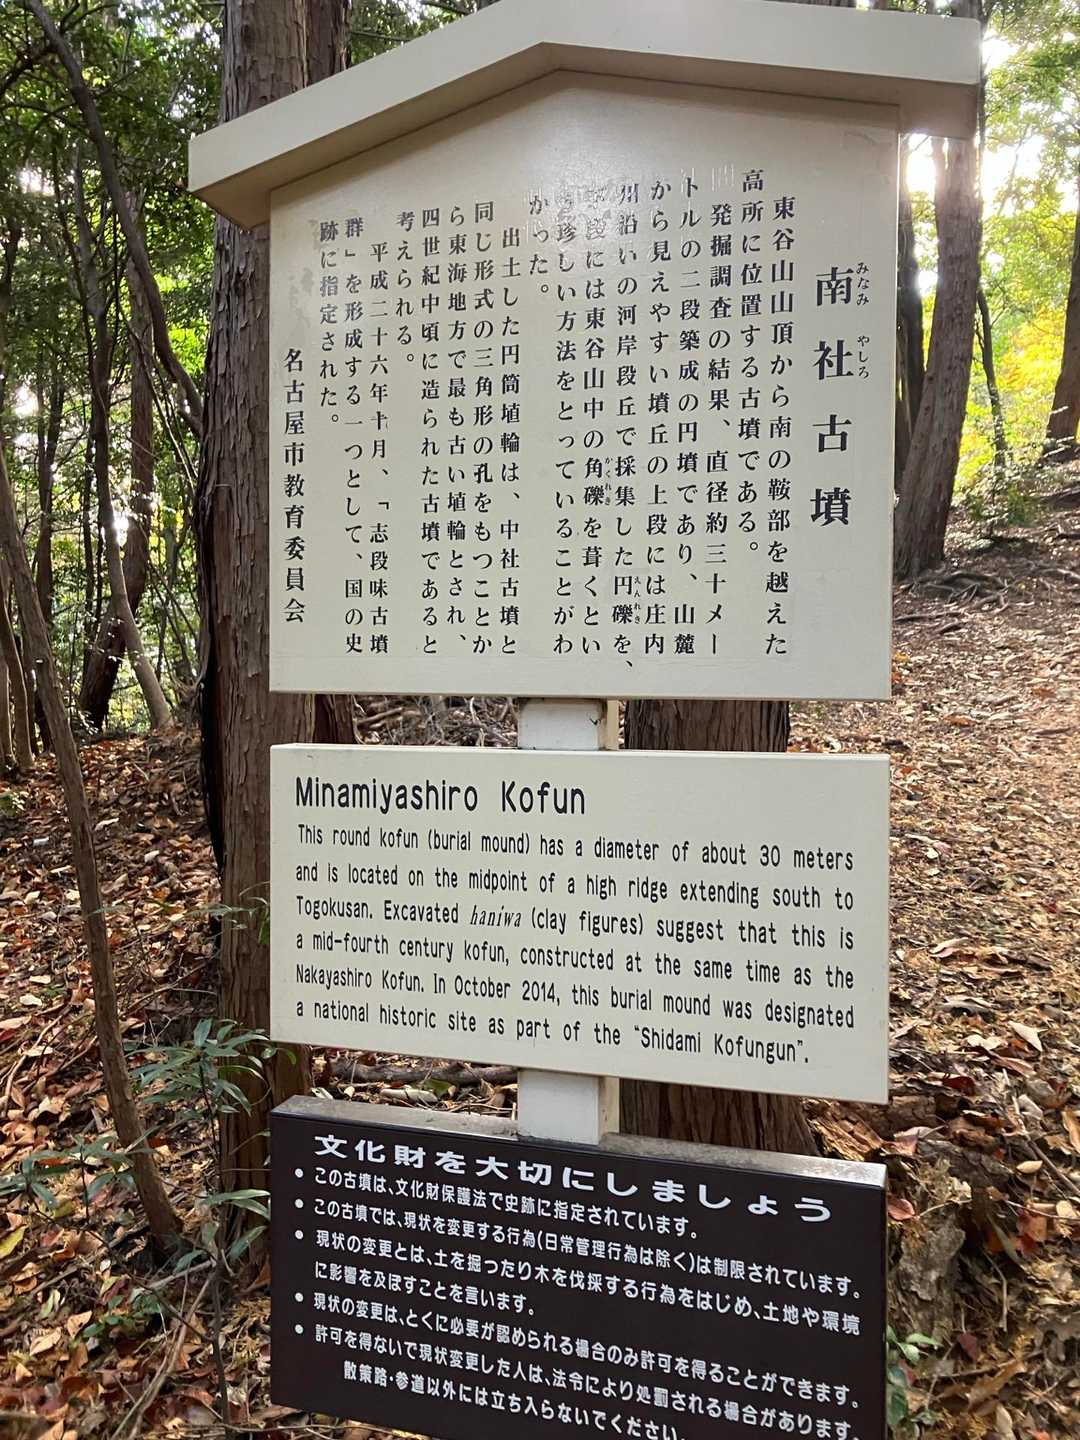 南社古墳
みなみ やしろ
東谷山山頂から南の鞍部を越えた
高所に位置する古墳である。
発掘調査の結果、直径約三十メー
トルの二段築成の円墳であり、山麓
から見えやすい墳丘の上段には庄内
川沿いの河岸段丘で採集した円礫を、
えんれき
下段には東谷山中の角礫を葺くとい
かくれき
う珍しい方法をとっていることがわ
かった。
出土した円筒埴輪は、中社古墳と
同じ形式の三角形の孔をもつことか
ら東海地方で最も古い埴輪とされ、
四世紀中頃に造られた古墳であると
考えられる。
平成二十六年十月、「志段味古墳
群」を形成する一つとして、国の史
跡に指定された。
名古屋市教育委員会
Minamiyashiro Kofun
This round kofun (burial mound) has a diameter of about 30 meters
and is located on the midpoint of a high ridge extending south to
Togokusan. Excavated haniwa (clay figures) suggest that this is
a mid-fourth century kofun, constructed at the same time as the
Nakayashiro Kofun. In October 2014, this burial mound was designated
a national historic site as part of the “Shidami Kofungun”.
文化財を大切にしましょう
● この古墳は、文化財保護法で史跡に指定されています。
● この古墳では、現状を変更する行為(日常管理行為は除く)は制限されています。
● 現状の変更とは、土を掘ったり木を伐採する行為をはじめ、土地や環境
に影響を及ぼすことを言います。
● 現状の変更は、とくに必要が認められる場合のみ許可を得ることができます。
● 許可を得ないで現状変更した人は、法令により処罰される場合があります。
散策路・参道以外には立ち入らないでください。